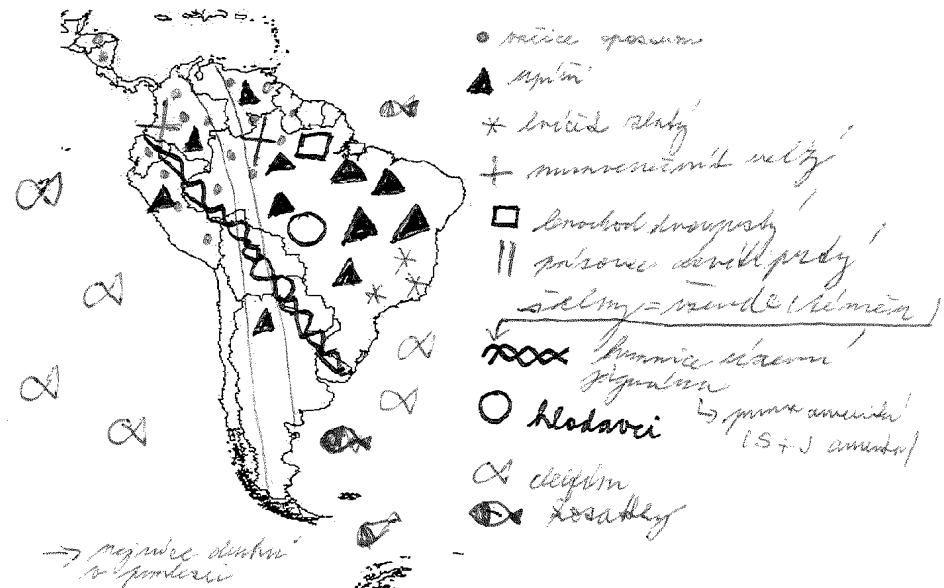 vačice opossum
upíři
lvíček zlatý
mravenečník velký
lenochod dvouprstý
pásovec devítipásý
šelmy = všude (téměř)
hranice území
jaguára
↳ puma americká
(S + J amerika)
hlodavci
delfín
kosatky
→ nejvíce druhů
v pralesci